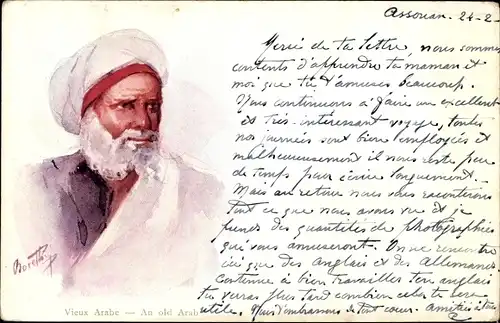 Assouan. 24-2
Merci de ta lettre, nous sommes
contents d'apprendre ta maman et
moi que tu t'amuses beaucoup.
Nous continuons à faire un excellent
et très-intéressant voyage, toutes
nos journées sont bien employées et
malheureusement il nous reste peu
de temps pour écrire longuement.
Mais au retour nous vous raconterons
tout ce que nous avons vu et je
prends des quantités de photographies
qui vous amuseront. On ne rencontre
ici que des anglais et des Allemands
Continue à bien travailler ton anglais
tu verras plus tard combien cela te sera
utile. Nous t'embrassons de tout cœur. Amitiés à tous
Boretto
Vieux Arabe — An old Arab